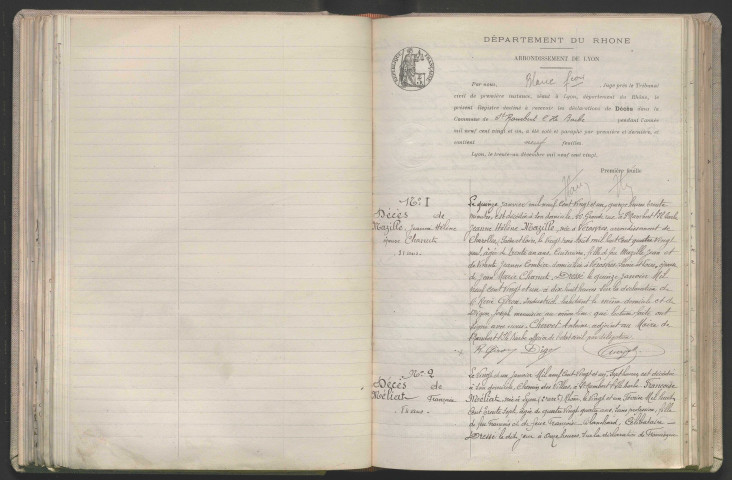 DÉPARTEMENT DU RHONE
ARRONDISSEMENT DE LYON
Par nous, Blanc Léon, Juge près le Tribunal
civil de première instance, séant à Lyon, département du Rhône, le
présent Registre destiné à recevoir les déclarations de Décès dans la
Commune de St Rambert l'Ile Barbe pendant l'année
mil neuf cent vingt et un, a été coté et paraphé par première et dernière, et
contient neuf feuilles.
Lyon, le trente-un décembre mil neuf cent vingt.
Première feuille
N° 1
Décès de
Mazille Jeanne Hélène
épouse Charnet
31 ans.
Le quinze janvier mil neuf cent vingt et un, quinze heures trente
minutes, est décédée à son domicile, Grande rue, à St Rambert l'Ile Barbe
Jeanne Hélène Mazille, née à arrondissement de
Charolles, Saône et Loire, le vingt août mil huit cent quatre vingt
neuf, âgée de trente un ans, fille de Mazille Jean et
de Jeanne domiciliés à Saône et Loire, épouse
de Jean Marie Charnet. Dressé le quinze janvier Mil
neuf cent vingt et un à dix huit heures sur la déclaration de
René Industriel, habitant le même domicile et de
Joseph menuisier au même lieu qui lecture faite ont
signé avec nous, Antoine adjoint au Maire de
St Rambert l'Ile Barbe officier de l'état civil par délégation.
N° 2
Décès de
Méliat Françoise
84 ans.
Le vingt et un janvier Mil neuf cent vingt et un, sept heures est décédée
à son domicile, Chemin des Villas, à St Rambert l'Ile Barbe Françoise
Méliat, née à Lyon, Rhône, le vingt et un Mil huit
cent trente sept, âgée de quatre vingt quatre ans, sans profession, fille
de feu François et de feue Françoise Blanchard, Célibataire
Dressé le dit jour à onze heures sur la déclaration de